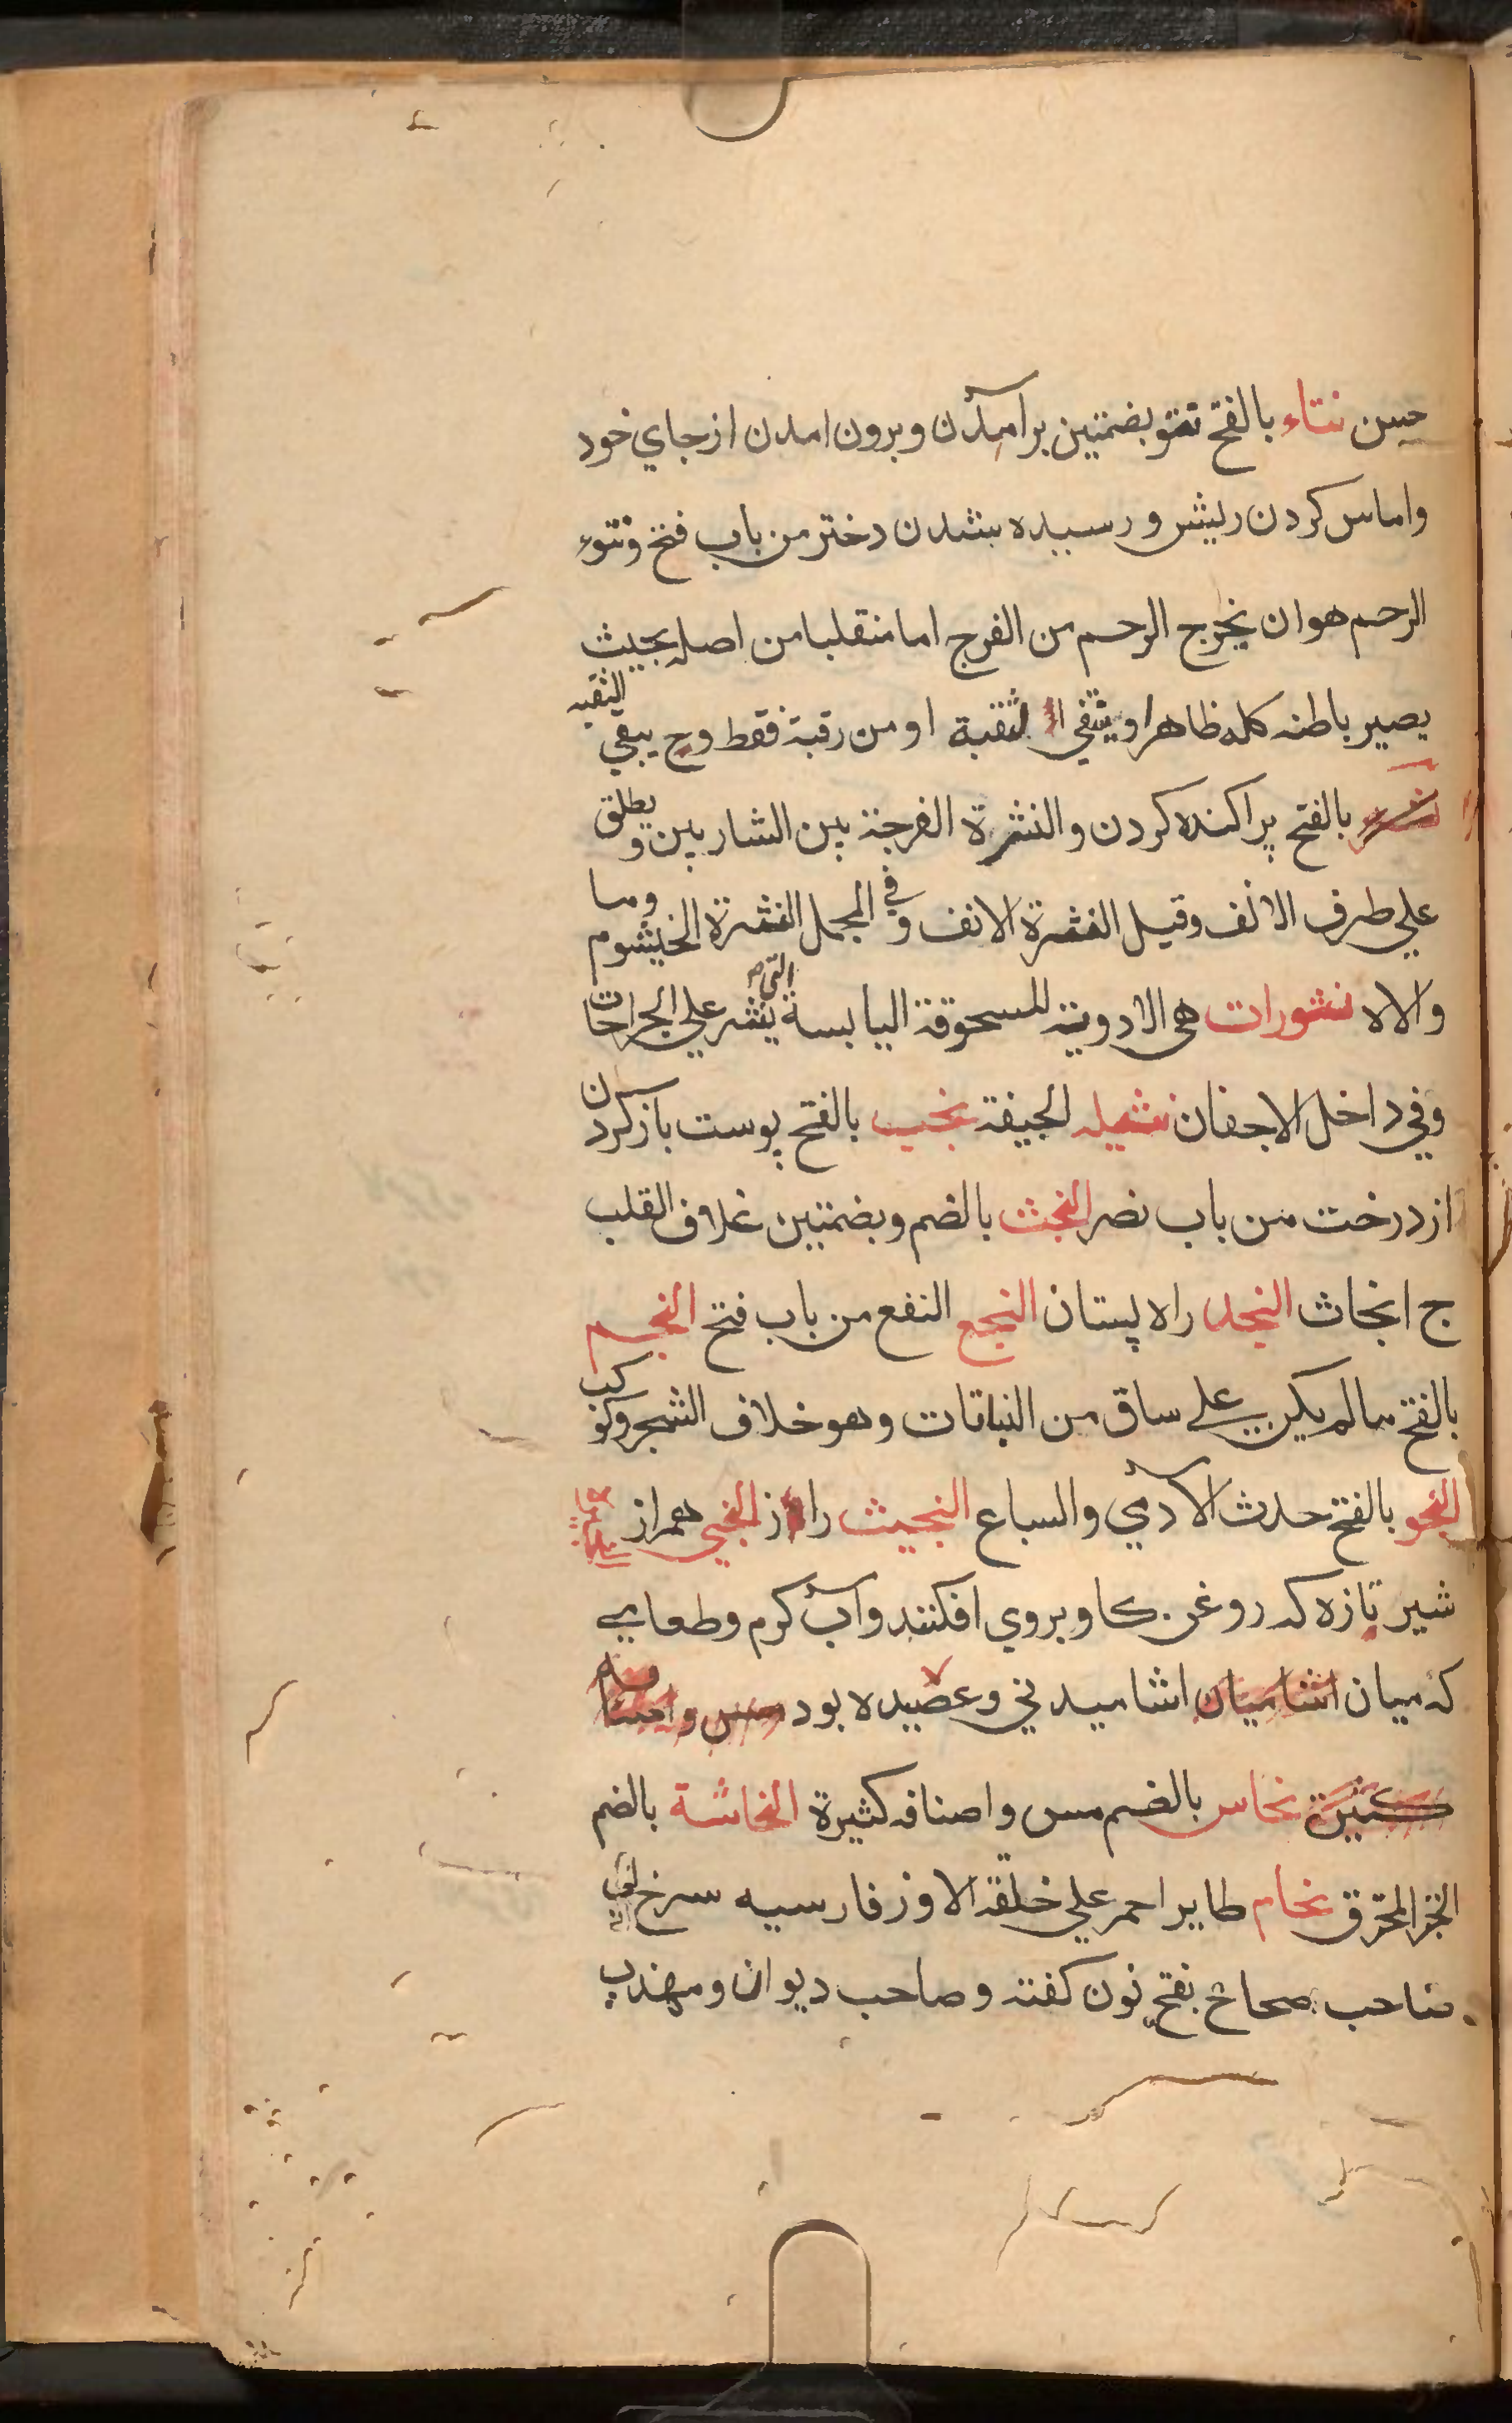 حسن نتاء بالفتح نتو بضمتین برآمدن و برون امدن از جاي خود
واماس کردن ریش و رسیده بشدن دختر من باب فتح ونتوء
الرحم هو ان یخرج الرحم من الفرج اما منقلبا من اصله بحیث
یصیر باطنه کله ظاهرا و یثفي الثقبة او من رقبة فقط وح یبقي الثقبه
نثر بالفتح پراکنده کردن والنثرة الفرجة بین الشاربین و یطلق
علي طرف الانف وقیل النثرة الانف و في المجمل النثرة الخیشوم وما
والاه نثورات هي الادویة المسحوقة الیابسة التي ینثر علي الجراحات
وفي داخل الاجفان نثیله الجیفة نجب بالفتح پوست باز کردن
از درخت من باب نصر النجث بالضم وبضمتین غلاف القلب
ج انجاث النجد راه پستان النجع النفع من باب فتح النجم
بالفتح ما لم یکن علي ساق من النباتات وهو خلاف الشجر وکوکب
النجو بالفتح حدث الآدمي والسباع النجیث راز النجي همراز
شیر تازه که روغن کاو بروي افکنند وآب کرم وطعامي
که میان اشامیان اشامیدني و عصیده بود مس و اصنافه
کثیرة نحاس بالضم مس واصنافه کثیرة النحاشة بالضم
الخبز المحترق نحام طایر احمر علي خلقة الاوز فارسیه سرخ
صاحب صحاح بفتح نون کفته و صاحب دیوان ومهذب